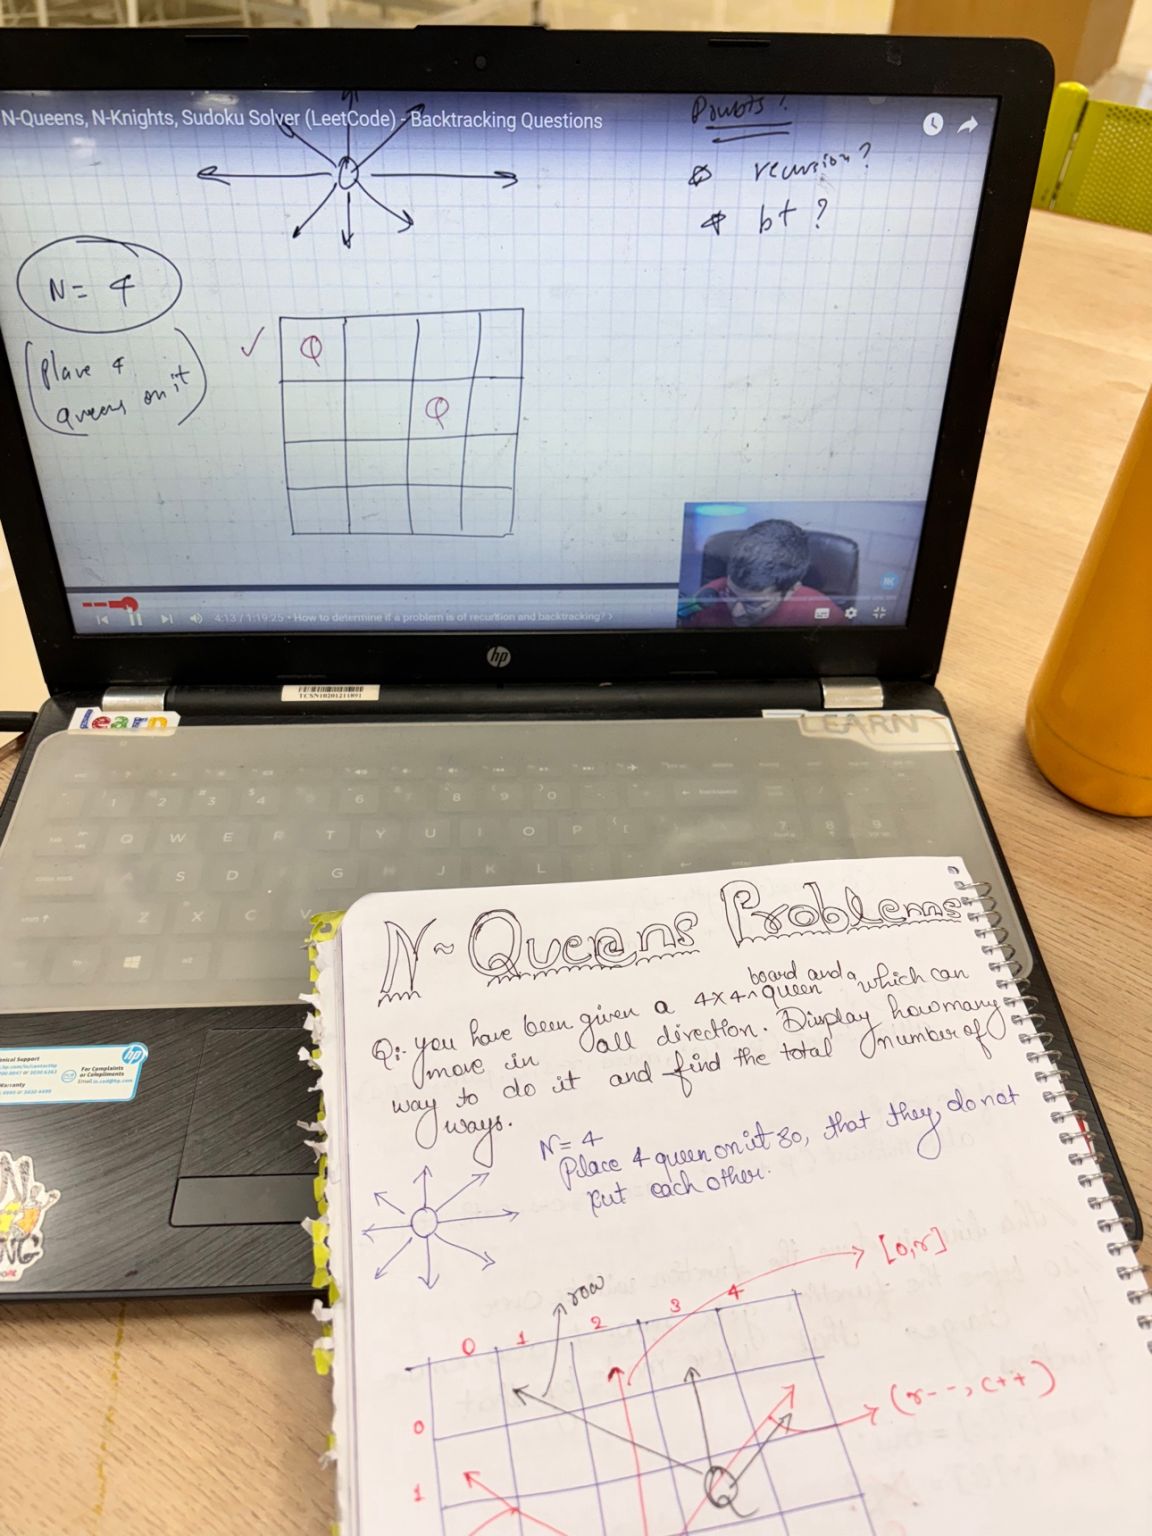 N-Queens, N-Knights, Sudoku Solver (LeetCode) - Backtracking Questions
Doubts?
recursion?
bt?
N= 4
(Place 4
queens on it)
✓
Q
Q
4:13 / 1:19:25 • How to determine if a problem is of recursion and backtracking? >
hp
TCSN10201211891
Learn
LEARN
1 2 3 4 6 8 9 0
Q W E R T Y U I O P
S D G J K L
Z X C V
hp
For Complaints
or Compliments
N-Queens Problems
Q:- you have been given a 4x4^ board and a queen which can
move in all direction. Display how many
way to do it and find the total number of
ways.
N= 4
Place 4 queen on it so, that they do not
cut each other.
[0,r]
row
0 1 2 3 4
0
(r--, c++)
1
Q